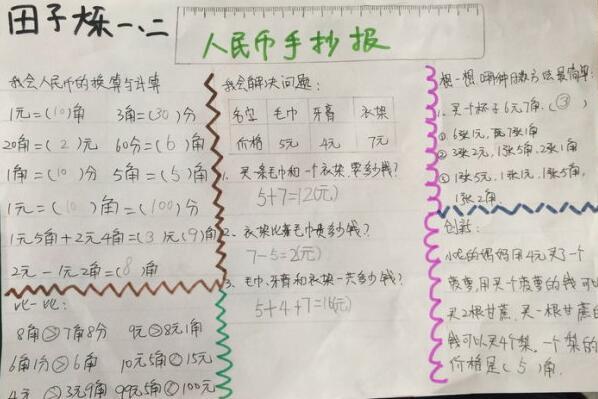 田子烁 一、二
人民币手抄报
我会人民币的换算与计算
1元=(10)角 3角=(30)分
20角=(2)元 60分=(6)角
1角=(10)分 5角=(5)角
1元=(10)角=(100)分
1元5角+2元4角=(3)元(9)角
2元-1元2角=(8)角
比一比:
8角>7角8分 9元>8元1角
6角1分>6角 10元5角<15元
3元9角 99元5角<100元
我会解决问题:
名称 毛巾 牙膏 衣架
价格 5元 4元 7元
1、买一条毛巾和一个衣架,要多少钱?
5+7=12(元)
2、衣架比毛巾贵多少钱?
7-5=2(元)
3、毛巾、牙膏和衣架一共多少钱?
5+4+7=16(元)
想一想哪种付款方法最简单:
1、买一个杯子6元7角,(③)
① 6张1元,1张1角
② 3张2元,1张5角,2张1角
③ 1张5元,1张1元,1张5角,
1张2角
创新:
小明的妈妈用4元买了一个
菠萝,用买一个菠萝的钱可以
买2根甘蔗,买一根甘蔗的
钱可以买4个梨,一个梨的
价格是(5)角.